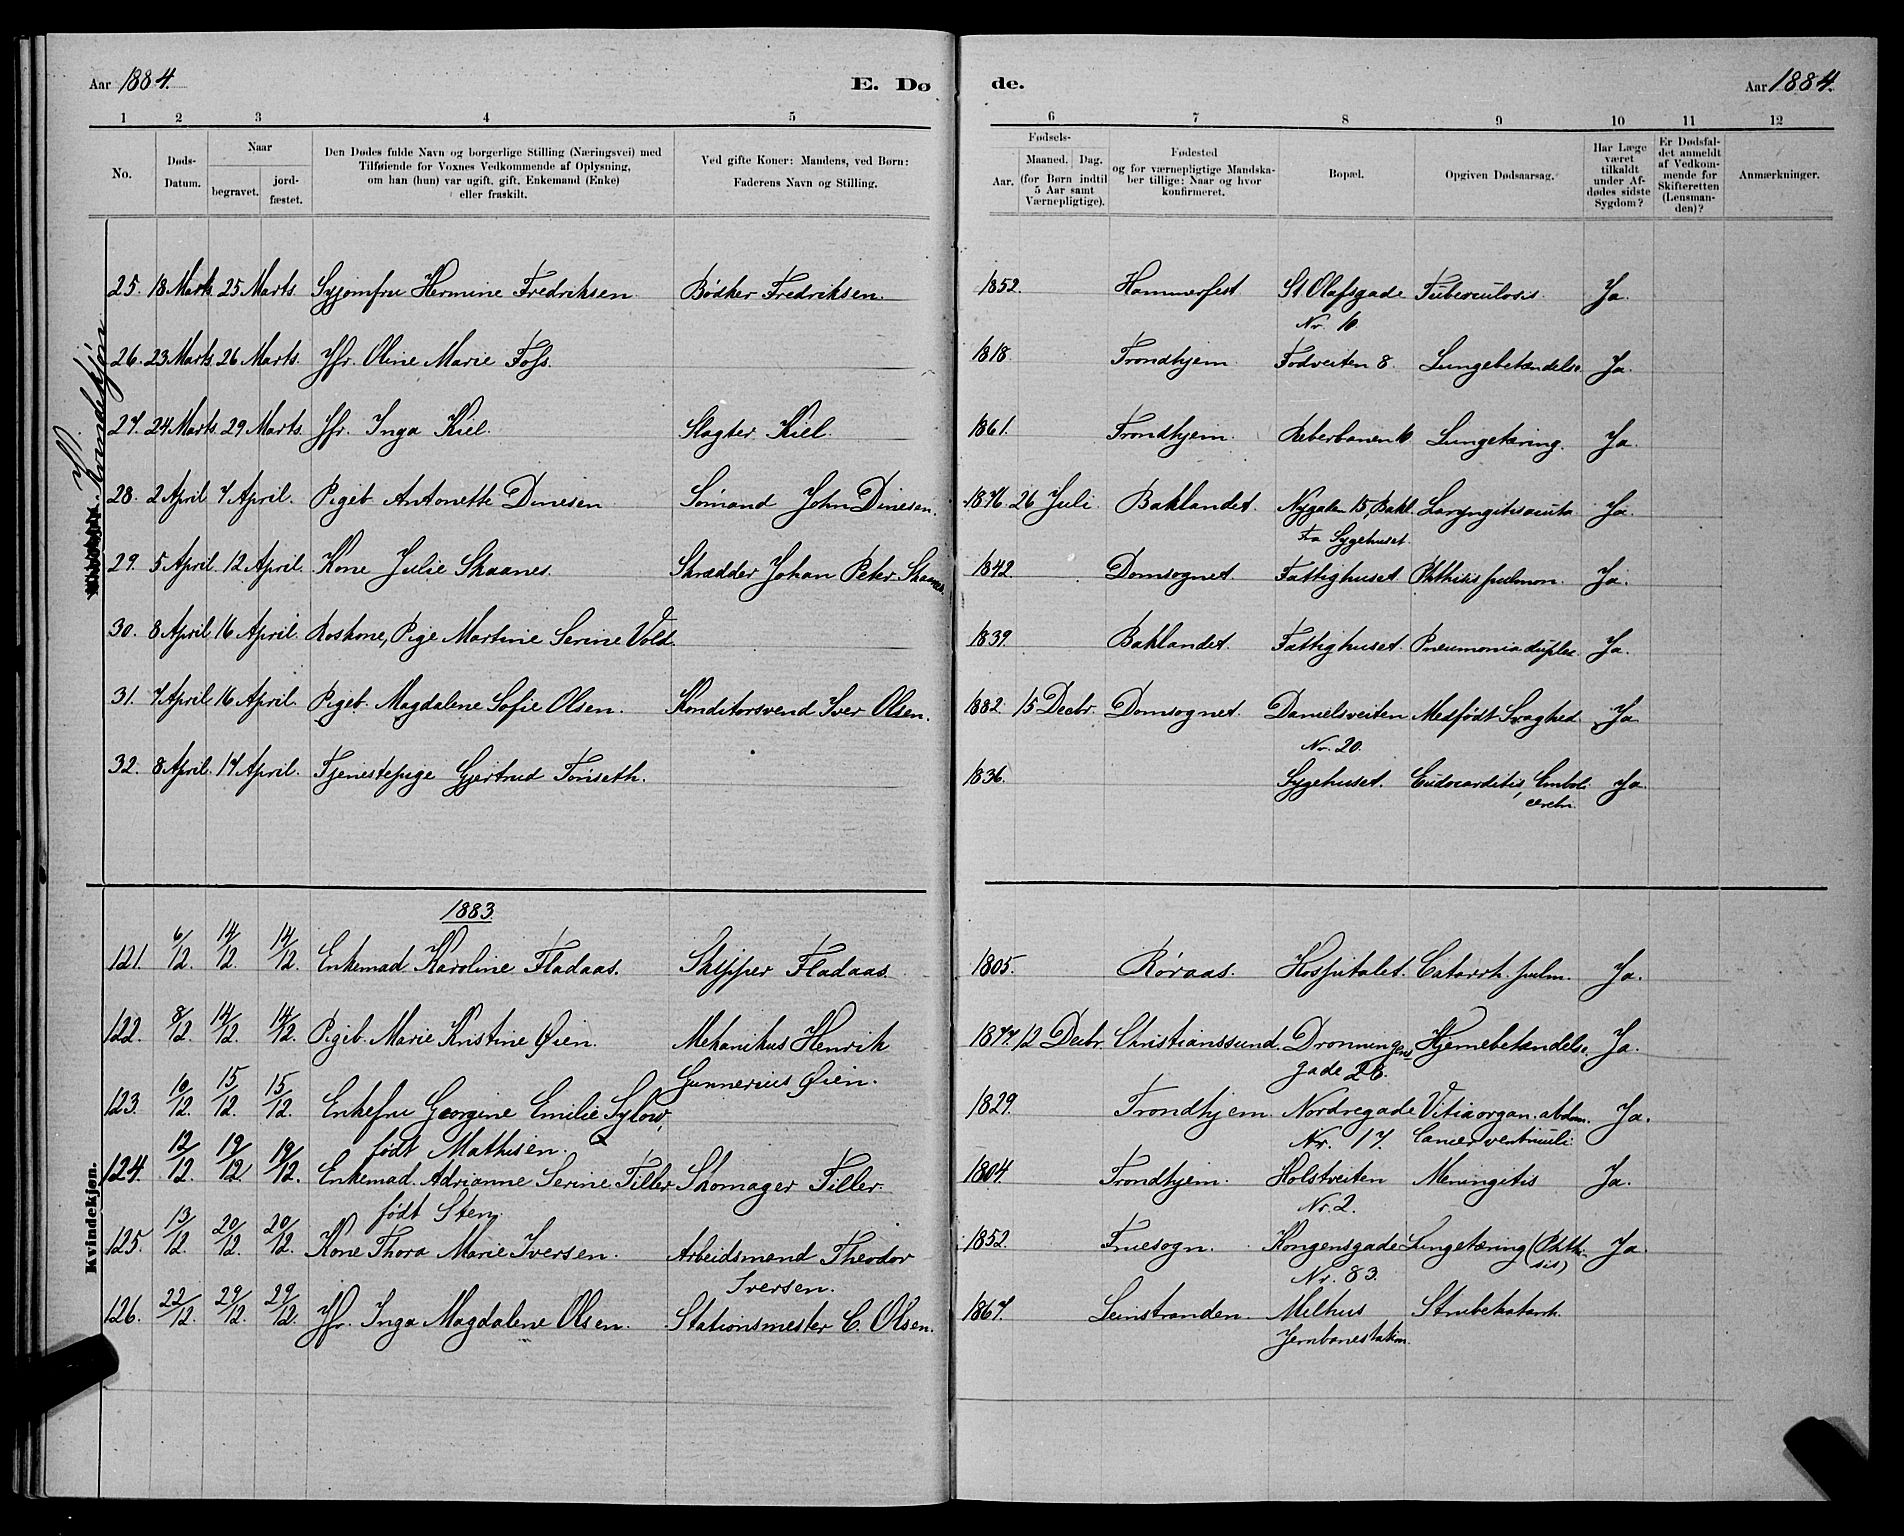 Aar 1884. E. Dø de. Aar 1884.
1 2 3 4 5 6 7 8 9 10 11 12
No.
Døds-
Datum.
Naar
begravet.
jord-
fæstet.
Den Dødes fulde Navn og borgerlige Stilling (Næringsvei) med
Tilføiende for Voxnes Vedkommende af Oplysning,
om han (hun) var ugift, gift, Enkemand (Enke)
eller fraskilt.
Ved gifte Koner: Mandens, ved Børn:
Faderens Navn og Stilling.
Fødsels-
Aar.
Maaned. Dag.
(for Børn indtil
5 Aar samt
Værnepligtige).
Fødested
og for værnepligtige Mandska-
ber tillige: Naar og hvor
konfirmeret.
Bopæl.
Opgiven Dødsaarsag.
Har Læge
været
tilkaldt
under Af-
dødes sidste
Sygdom?
Er Dødsfal-
det anmeldt
af Vedkom-
mende for
Skifteretten
(Lensman-
den)?
Anmærkninger.
Kvindekjøn
25. 18 Marts 25 Marts. Syjomfru Hermine Fredriksen. Bødker Fredriksen. 1852. Hammerfest St Olafsgade Tuberculosis. Ja.
Nr. 10.
26. 23 Marts 26 Marts. Jfr. Oline Marie Foss. 1818. Trondhjem. Fodveiten 8. Lungebetændelse. Ja.
27. 24 Marts. 29 Marts. Jfr. Inga Kiel. Slagter Kiel. 1861. Trondhjem. Reberbanen 10. Lungetæring. Ja.
28. 2 April 7 April. Pigeb. Antonette Dinesen Sømand John Dinesen. 1876. 26 Juli. Baklandet. Nygaden 15, Bakl. Laryngitis acuta Ja.
Fra Sygehuset.
29. 5 April. 12 April. Kone Julie Skaanes. Skrædder Johan Peter Skaanes. 1842. Domsognet. Fattighuset. Phthisis pulmon. Ja.
30. 8 April. 16 April. Roskone, Pige Martine Serine Vold. 1839. Baklandet. Fattighuset. Pneumonia duplex. Ja.
31. 7 April 16 April. Pigeb. Magdalene Sofie Olsen. Konditorsvend Iver Olsen. 1882. 15 Decbr. Domsognet. Danielsveiten Medfødt Svaghed. Ja
Nr. 20.
32. 8 April. 17 April. Tjenestepige Gjertrud Tønseth. 1836. Sygehuset. Endocarditis, Emboli Ja
cerebri.
1883.
Kvindekjøn.
121. 6/12. 14/12. 14/12. Enkemad. Karoline Fladaas. Skipper Fladaas. 1805. Røraas. Hospitalet. Catarrh. pulm. Ja.
122. 8/12. 14/12. 14/12. Pigeb. Marie Kristine Øien. Mekanikus Henrik 1877. 12 Decbr. Christianssund. Dronningens Hjernebetændelse. Ja.
Gunnerius Øien. gade 28.
123. 10/12. 15/12. 15/12. Enkefru Georgine Emilie Sylow, 1829. Trondhjem. Nordregade Vitia organ. abdom. Ja.
født Mathisen. Nr. 17. Cancer ventriculi.
124. 12/12. 19/12. 19/12. Enkemad. Adrianne Serine Tiller Skomager Tiller. 1804. Trondhjem. Holstveiten Meningitis Ja.
født Sten. Nr. 2.
125. 13/12. 20/12. 20/12. Kone Thora Marie Iversen. Arbeidsmand Theodor 1852. Fruesogn. Kongensgade Lungetæring (Phthi- Ja.
Iversen. Nr. 83. sis)
126. 22/12. 29/12. 29/12. Jfr. Inga Magdalene Olsen. Stationsmester C. Olsen. 1867. Leinstranden. Melhus Strubekatarrh.
Jernbanestation.